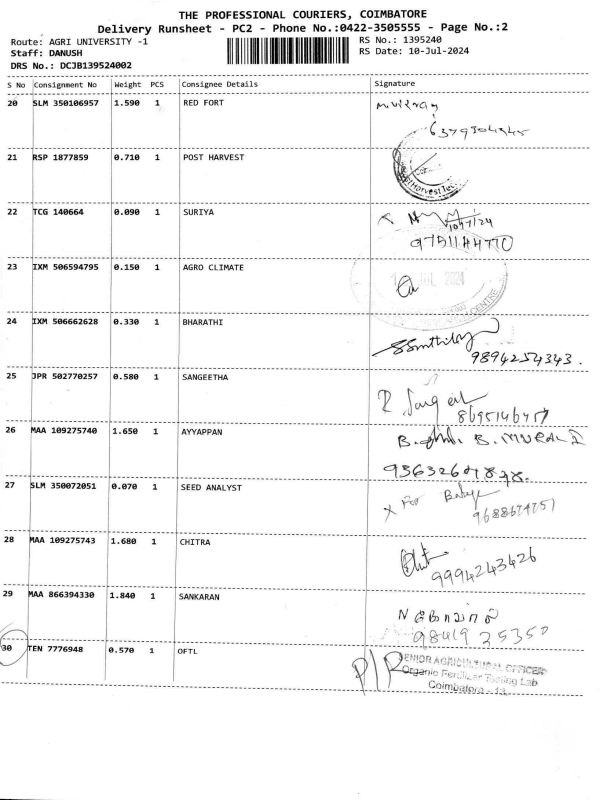 THE PROFESSIONAL COURIERS, COIMBATORE
Delivery Runsheet - PC2 - Phone No.:0422-3505555 - Page No.:2
Route: AGRI UNIVERSITY -1 RS No.: 1395240
Staff: DANUSH RS Date: 10-Jul-2024
DRS No.: DCJB139524002
S No Consignment No Weight PCS Consignee Details Signature
20 SLM 350106957 1.590 1 RED FORT
21 RSP 1877859 0.710 1 POST HARVEST
22 TCG 140664 0.090 1 SURIYA
10/7/24
9751144770
23 IXM 506594795 0.150 1 AGRO CLIMATE
JUL 2024
CENTRE
24 IXM 506662628 0.330 1 BHARATHI
9894254343.
25 JPR 502770257 0.580 1 SANGEETHA
8695146457
26 MAA 109275740 1.650 1 AYYAPPAN
27 SLM 350072051 0.070 1 SEED ANALYST
X For
28 MAA 109275743 1.680 1 CHITRA
9994243426
29 MAA 866394330 1.840 1 SANKARAN
30 TEN 7776948 0.570 1 OFTL
SENIOR AGRICULTURAL OFFICER
Organic Fertilizer Testing Lab
Coimbatore - 13.